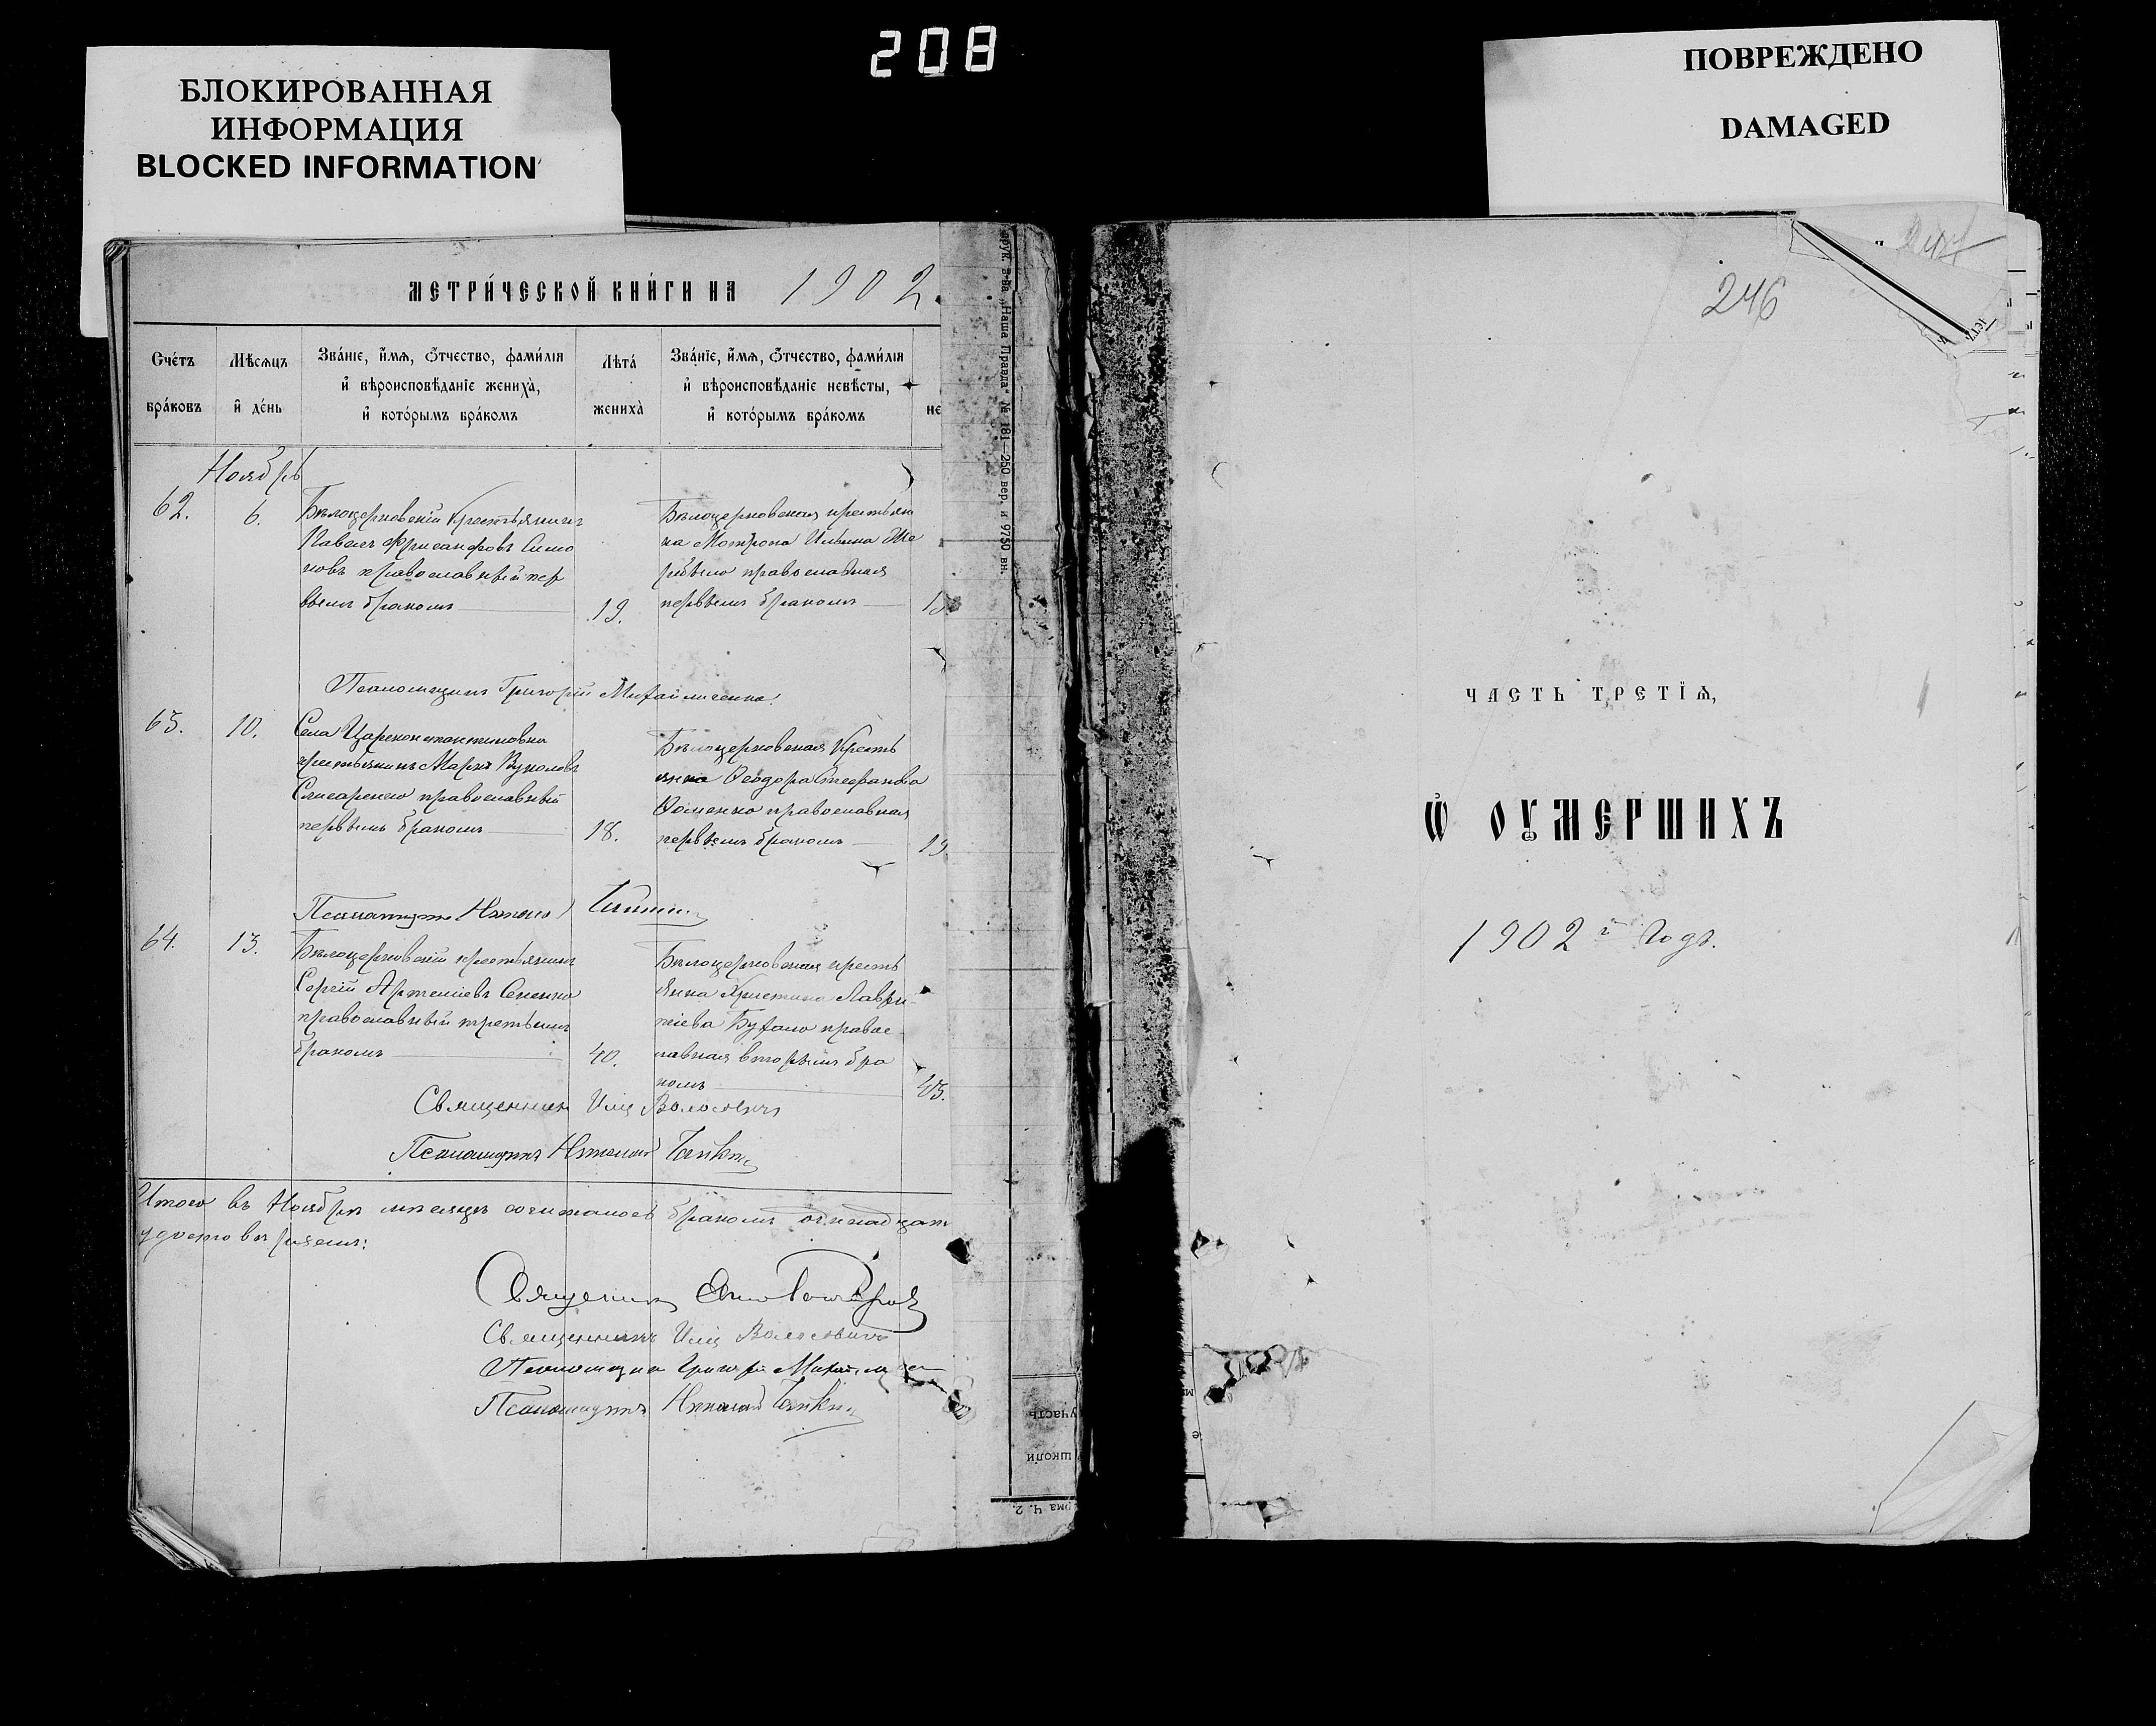 208
БЛОКИРОВАННАЯ
ИНФОРМАЦИЯ
BLOCKED INFORMATION
ПОВРЕЖДЕНО
DAMAGED
МЕТРИ́ЧЕСКОЙ КНИ́ГИ НА 1902.
Сче́тъ бра́ковъ
Мѣ́сяцъ и де́нь
Зва́нїе, и́мѧ, ѻ҆́тчество, фами́лїя
и҆ вѣроисповѣ́данїе жениха̀,
и҆ кото́рымъ бра́комъ
Лѣта̀ жениха̀
Зва́нїе, и́мѧ, ѻ҆́тчество, фами́лїя
и҆ вѣроисповѣ́данїе невѣ́сты,
и҆ кото́рымъ бра́комъ
не
Ноябрь
62.
6.
Бѣлоцерковскій Крестьянинъ
Павелъ
новъ православный пер
вымъ бракомъ
19.
Бѣлоцерковская крестьян
ка Мотрона Ильина Же
ребило православная
первымъ бракомъ
Псаломщикъ Григорій Михайличенко.
63.
10.
Села Цареконстантиновки
крестьянинъ Маркъ Вуколовъ
Слисаренко православный
первымъ бракомъ
18.
Бѣлоцерковская Кресть
янка Ѳеодора Стефанова
православная
первымъ бракомъ
19.
Псаломщикъ
64.
13.
Бѣлоцерковскій крестьянинъ
Сергій Артеміевъ Сененко
православный третьимъ
бракомъ
40.
Бѣлоцерковская кресть
янка Христина Лаврен-
тіева Бухало право-
славная вторымъ бра
комъ
45.
Священникъ Илія Волосовичъ
Псаломщикъ
Итого въ Ноябрѣ мѣсяцѣ сочеталось бракомъ одинадцать
удостовѣряемъ:
Священникъ
Священникъ Илія Волосовичъ
Псаломщикъ Григорій
Псаломщикъ
„Наша Правда“ № 181—250 вер. и 9750 вн.
участь
школи
рма Ч. 2
246
ЧАСТЬ ТРЕТЇѦ,
Ѡ҆ ОУ҆МЕРШИХЪ
1902 й Годъ.